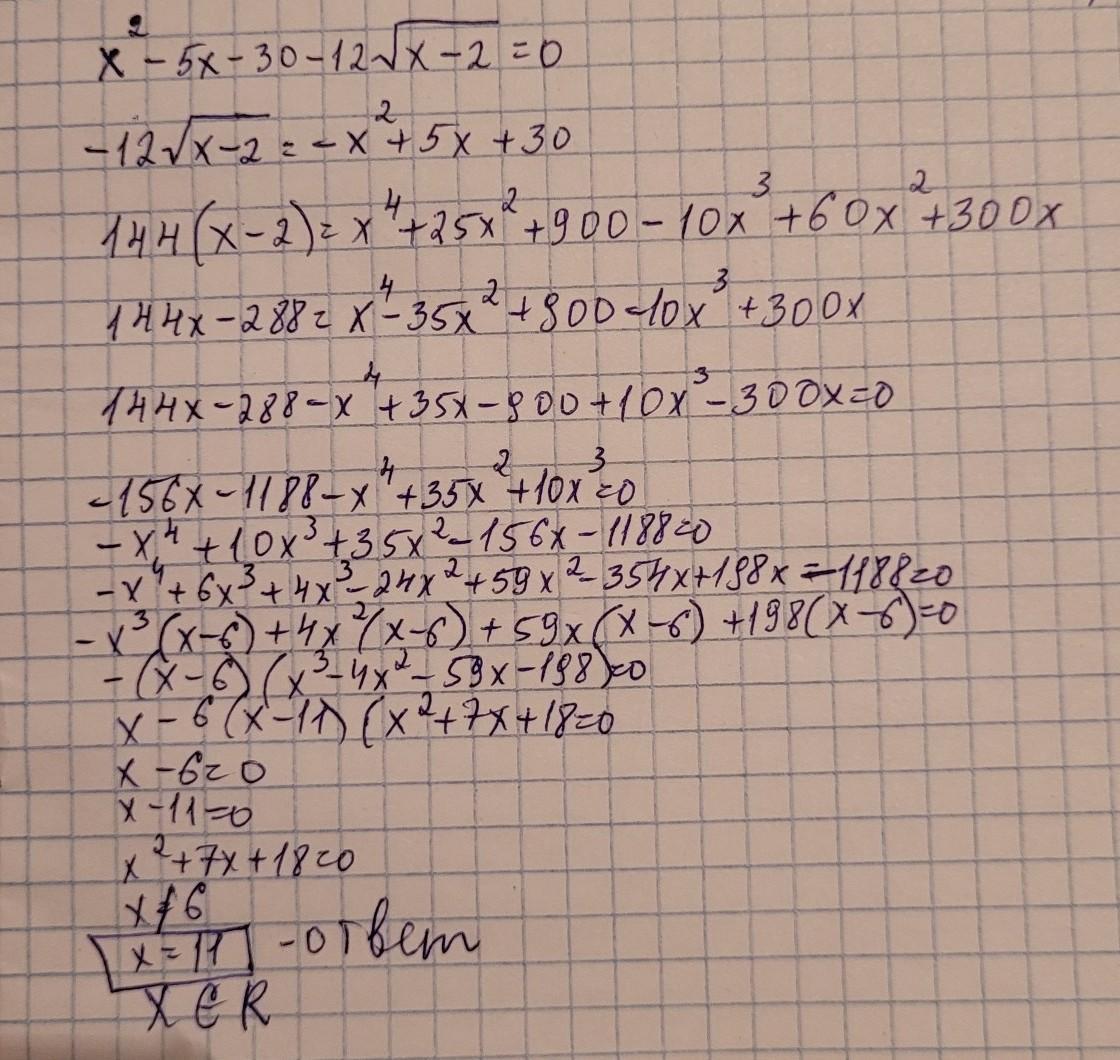 x² - 5x - 30 - 12√(x - 2) = 0
-12√(x-2) = -x² + 5x + 30
144(x - 2) = x⁴ + 25x² + 900 - 10x³ + 60x² + 300x
144x - 288 = x⁴ - 35x² + 900 - 10x³ + 300x
144x - 288 - x⁴ + 35x - 900 + 10x³ - 300x = 0
-156x - 1188 - x⁴ + 35x² + 10x³ = 0
-x⁴ + 10x³ + 35x² - 156x - 1188 = 0
-x⁴ + 6x³ + 4x³ - 24x² + 59x² - 354x + 198x - 1188 = 0
-x³(x-6) + 4x²(x-6) + 59x(x-6) + 198(x-6) = 0
-(x-6)(x³ - 4x² - 59x - 198) = 0
x - 6(x-11)(x² + 7x + 18 = 0
x - 6 = 0
x - 11 = 0
x² + 7x + 18 = 0
x ≠ 6
x = 11 - ответ
x ∈ R